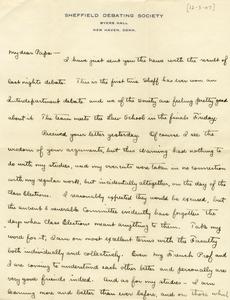 SHEFFIELD DEBATING SOCIETY
BYERS HALL
NEW HAVEN, CONN.
[12-3-07]
My dear Papa:—
I have just sent you the news with the result of
last nights debate. This is the first time Sheff has ever won an
Interdepartment debate and we of the Society are feeling pretty good
about it. The team meet the Law School in the finals Friday.
Received your letter yesterday. Of course I see the
wisdom of your arguments, but this warning had nothing to
do with my studies, and my overcuts were taken in no connection
with my regular work, but incidentally altogether, on the day of the
class Elections. I reasonably expected they would be excused, but
the ancient & venerable Committee evidently have forgotten the
days when Class Elections meant anything to them. Take my
word for it, I am on most excellent terms with the Faculty
both individually and collectively. Even my French Prof and
I are coming to understand each other better and personally are
very good friends indeed. And as for my studies - I am
learning more and better than ever before, and on those which